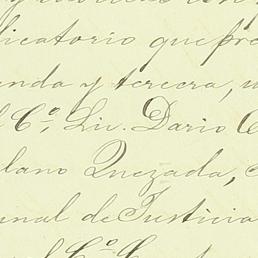 dicatorio que pre
enda y tercera, u
l C.º Lic. Dario
lano Quezada,
unal de Justicia